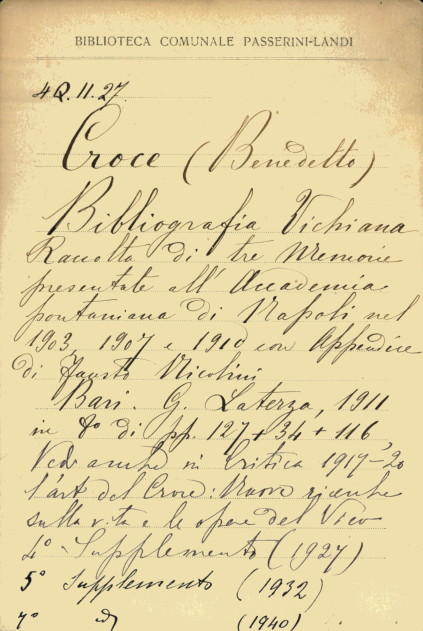 BIBLIOTECA COMUNALE PASSERINI-LANDI
4Q.11.27.
Croce (Benedetto)
Bibliografia Vichiana
Raccolta di tre Memorie
presentate all'Accademia
pontaniana di Napoli nel
1903, 1907 e 1910 con Appendice
di Fausto Nicolini
Bari. G. Laterza, 1911
in 8° di pp. 127 + 34 + 116,
Vedi anche in Critica 1917-20
l'art. del Croce: Nuove ricerche
sulla vita e le opere del Vico
4° Supplemento (1927)
5° Supplemento (1932)
7° id (1940)